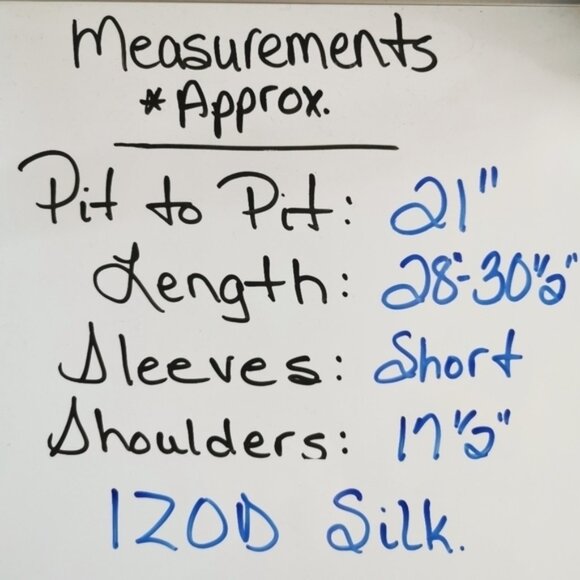 Measurements
*Approx.
Pit to Pit: 21"
Length: 28"-30½"
Sleeves: Short
Shoulders: 17½"
IZOD Silk.